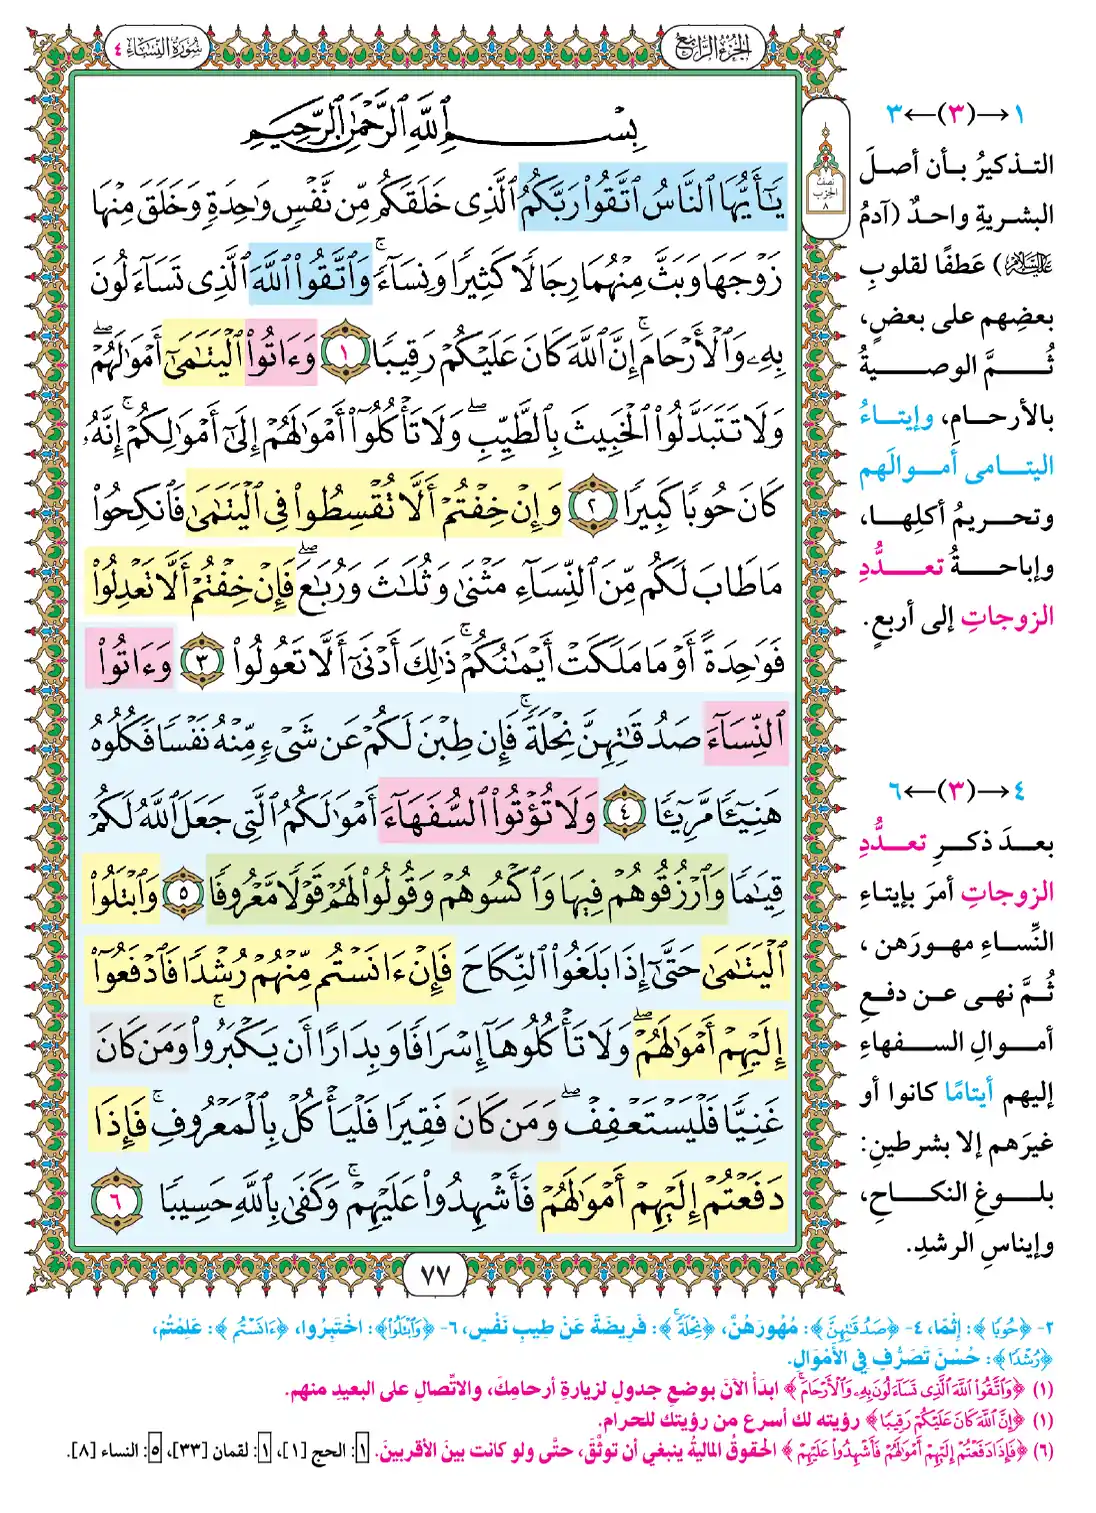 الجزء الرابع
سورة النساء ٤
نصف
الحزب
٨
بِسْمِ ٱللَّهِ ٱلرَّحْمَٰنِ ٱلرَّحِيمِ
يَٰٓأَيُّهَا ٱلنَّاسُ ٱتَّقُوا۟ رَبَّكُمُ ٱلَّذِى خَلَقَكُم مِّن نَّفْسٍ وَٰحِدَةٍ وَخَلَقَ مِنْهَا
زَوْجَهَا وَبَثَّ مِنْهُمَا رِجَالًا كَثِيرًا وَنِسَآءً ۚ وَٱتَّقُوا۟ ٱللَّهَ ٱلَّذِى تَسَآءَلُونَ
بِهِۦ وَٱلْأَرْحَامَ ۚ إِنَّ ٱللَّهَ كَانَ عَلَيْكُمْ رَقِيبًا ١ وَءَاتُوا۟ ٱلْيَتَٰمَىٰٓ أَمْوَٰلَهُمْ ۖ
وَلَا تَتَبَدَّلُوا۟ ٱلْخَبِيثَ بِٱلطَّيِّبِ ۖ وَلَا تَأْكُلُوٓا۟ أَمْوَٰلَهُمْ إِلَىٰٓ أَمْوَٰلِكُمْ ۚ إِنَّهُۥ
كَانَ حُوبًا كَبِيرًا ٢ وَإِنْ خِفْتُمْ أَلَّا تُقْسِطُوا۟ فِى ٱلْيَتَٰمَىٰ فَٱنكِحُوا۟
مَا طَابَ لَكُم مِّنَ ٱلنِّسَآءِ مَثْنَىٰ وَثُلَٰثَ وَرُبَٰعَ ۖ فَإِنْ خِفْتُمْ أَلَّا تَعْدِلُوا۟
فَوَٰحِدَةً أَوْ مَا مَلَكَتْ أَيْمَٰنُكُمْ ۚ ذَٰلِكَ أَدْنَىٰٓ أَلَّا تَعُولُوا۟ ٣ وَءَاتُوا۟
ٱلنِّسَآءَ صَدُقَٰتِهِنَّ نِحْلَةً ۚ فَإِن طِبْنَ لَكُمْ عَن شَىْءٍ مِّنْهُ نَفْسًا فَكُلُوهُ
هَنِيٓـًٔا مَّرِيٓـًٔا ٤ وَلَا تُؤْتُوا۟ ٱلسُّفَهَآءَ أَمْوَٰلَكُمُ ٱلَّتِى جَعَلَ ٱللَّهُ لَكُمْ
قِيَٰمًا وَٱرْزُقُوهُمْ فِيهَا وَٱكْسُوهُمْ وَقُولُوا۟ لَهُمْ قَوْلًا مَّعْرُوفًا ٥ وَٱبْتَلُوا۟
ٱلْيَتَٰمَىٰ حَتَّىٰٓ إِذَا بَلَغُوا۟ ٱلنِّكَاحَ فَإِنْ ءَانَسْتُم مِّنْهُمْ رُشْدًا فَٱدْفَعُوٓا۟
إِلَيْهِمْ أَمْوَٰلَهُمْ ۖ وَلَا تَأْكُلُوهَآ إِسْرَافًا وَبِدَارًا أَن يَكْبَرُوا۟ ۚ وَمَن كَانَ
غَنِيًّا فَلْيَسْتَعْفِفْ ۖ وَمَن كَانَ فَقِيرًا فَلْيَأْكُلْ بِٱلْمَعْرُوفِ ۚ فَإِذَا
دَفَعْتُمْ إِلَيْهِمْ أَمْوَٰلَهُمْ فَأَشْهِدُوا۟ عَلَيْهِمْ ۚ وَكَفَىٰ بِٱللَّهِ حَسِيبًا ٦
٧٧
١→(٣)←٣
التذكيرُ بأن أصلَ
البشريةِ واحدٌ (آدمُ
عليه السلام) عَطفًا لقلوبِ
بعضِهم على بعضٍ،
ثُمَّ الوصيةُ
بالأرحامِ، وإيتاءُ
اليتامى أموالَهم
وتحريمُ أكلِها،
وإباحةُ تعدُّدِ
الزوجاتِ إلى أربعٍ.
٤→(٣)←٦
بعدَ ذكرِ تعدُّدِ
الزوجاتِ أمرَ بإيتاءِ
النِّساءِ مهورَهن،
ثُمَّ نهى عن دفعِ
أموالِ السفهاءِ
إليهم أيتامًا كانوا أو
غيرَهم إلا بشرطينِ:
بلوغِ النكاحِ،
وإيناسِ الرشدِ.
٢- ﴿حُوبًا﴾: إِثْمًا، ٤- ﴿صَدُقَٰتِهِنَّ﴾: مُهُورَهُنَّ، ﴿نِحْلَةً ۚ﴾: فَرِيضَةً عَنْ طِيبِ نَفْسٍ، ٦- ﴿وَٱبْتَلُوا۟﴾: اخْتَبِرُوا، ﴿ءَانَسْتُم﴾: عَلِمْتُمْ،
﴿رُشْدًا﴾: حُسْنَ تَصَرُّفٍ فِي الأَمْوَالِ.
(١) ﴿وَٱتَّقُوا۟ ٱللَّهَ ٱلَّذِى تَسَآءَلُونَ بِهِۦ وَٱلْأَرْحَامَ ۚ﴾ ابدَأْ الآنَ بوضعِ جدولٍ لزيارةِ أرحامِكَ، والاتِّصالِ على البعيدِ منهم.
(١) ﴿إِنَّ ٱللَّهَ كَانَ عَلَيْكُمْ رَقِيبًا﴾ رؤيته لك أسرع من رؤيتك للحرام.
(٦) ﴿فَإِذَا دَفَعْتُمْ إِلَيْهِمْ أَمْوَٰلَهُمْ فَأَشْهِدُوا۟ عَلَيْهِمْ﴾ الحقوقُ الماليةُ ينبغي أن توثَّقَ، حتَّى ولو كانت بينَ الأقربينَ. ١: الحج [١]، ١: لقمان [٣٣]، ٥: النساء [٨].